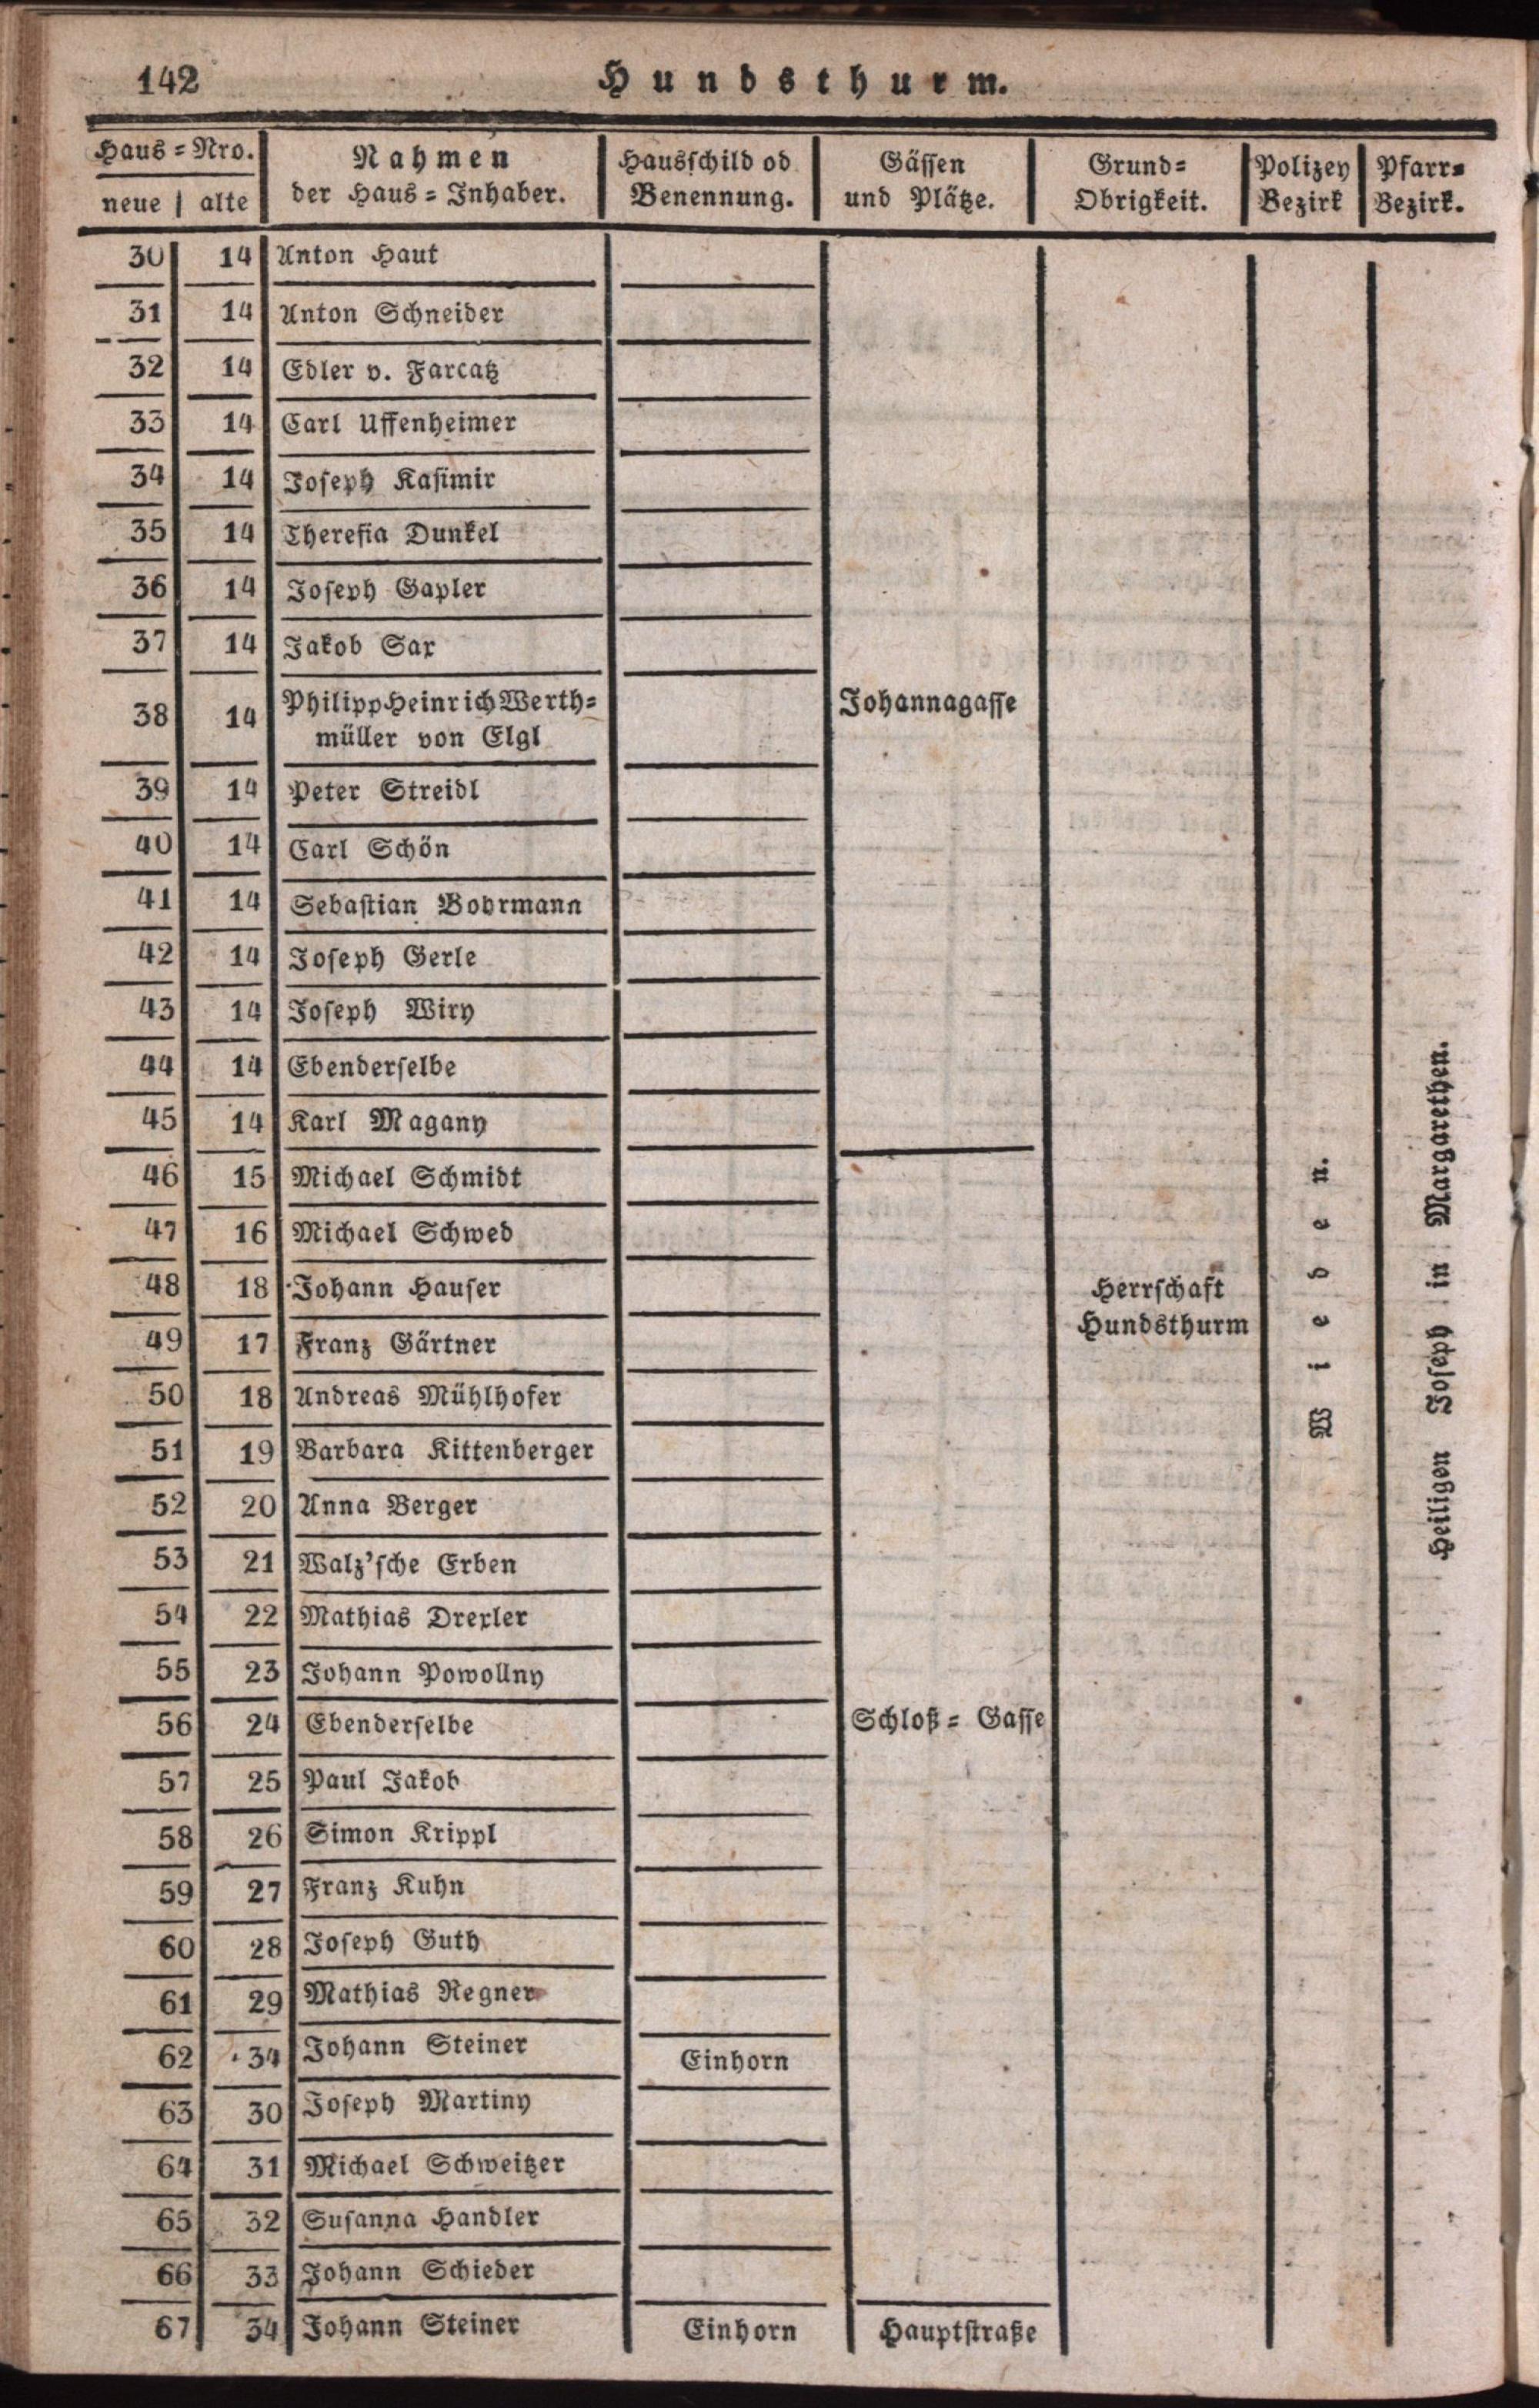 142 Hundsthurm.
Haus=Nro. Nahmen Hausschild od Gässen Grund= Polizey Pfarr=
neue alte der Haus=Inhaber. Benennung. und Plätze. Obrigkeit. Bezirk Bezirk.
30 14 Anton Haut
31 14 Anton Schneider
32 14 Edler v. Farcatz
33 14 Carl Uffenheimer
34 14 Joseph Kasimir
35 14 Theresia Dunkel
36 14 Joseph Gapler
37 14 Jakob Sax
38 14 Philipp Heinrich Werth= Johannagasse
müller von Elgl
39 14 Peter Streidl
40 14 Carl Schön
41 14 Sebastian Bohrmann
42 14 Joseph Gerle
43 14 Joseph Wiry
44 14 Ebenderselbe
45 14 Karl Magany
46 15 Michael Schmidt
47 16 Michael Schwed
48 18 Johann Hauser Herrschaft
49 17 Franz Gärtner Hundsthurm
50 18 Andreas Mühlhofer
51 19 Barbara Kittenberger
52 20 Anna Berger
53 21 Walz'sche Erben
54 22 Mathias Drexler
55 23 Johann Powollny
56 24 Ebenderselbe Schloß=Gasse
57 25 Paul Jakob
58 26 Simon Krippl
59 27 Franz Kuhn
60 28 Joseph Guth
61 29 Mathias Regner
62 34 Johann Steiner Einhorn
63 30 Joseph Martiny
64 31 Michael Schweitzer
65 32 Susanna Handler
66 33 Johann Schieder
67 34 Johann Steiner Einhorn Hauptstraße
Wieden.
Heiligen Joseph in Margarethen.